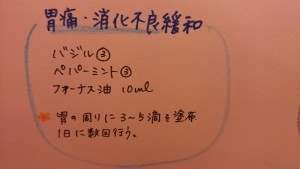 胃痛・消化不良緩和
バジル③
ペパーミント③
フォーナス油 10ml
★胃の周りに3~5滴を塗布
1日に数回行う。